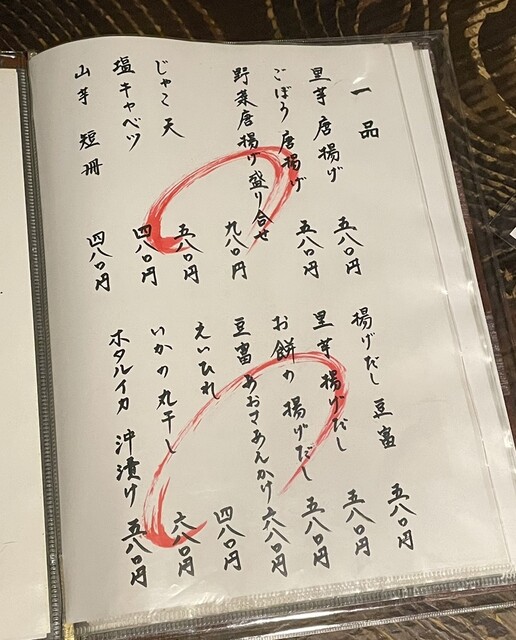 一品
里芋唐揚げ 五八〇円
ごぼう唐揚げ 五八〇円
野菜唐揚げ盛り合せ 九八〇円
じゃこ天 五八〇円
塩キャベツ 四八〇円
山芋短冊 四八〇円
揚げだし豆富 五八〇円
里芋揚げだし 五八〇円
お餅の揚げだし 五八〇円
豆富あおさあんかけ 六八〇円
えいひれ 四八〇円
いかの丸干し 六八〇円
ホタルイカ沖漬け 五八〇円